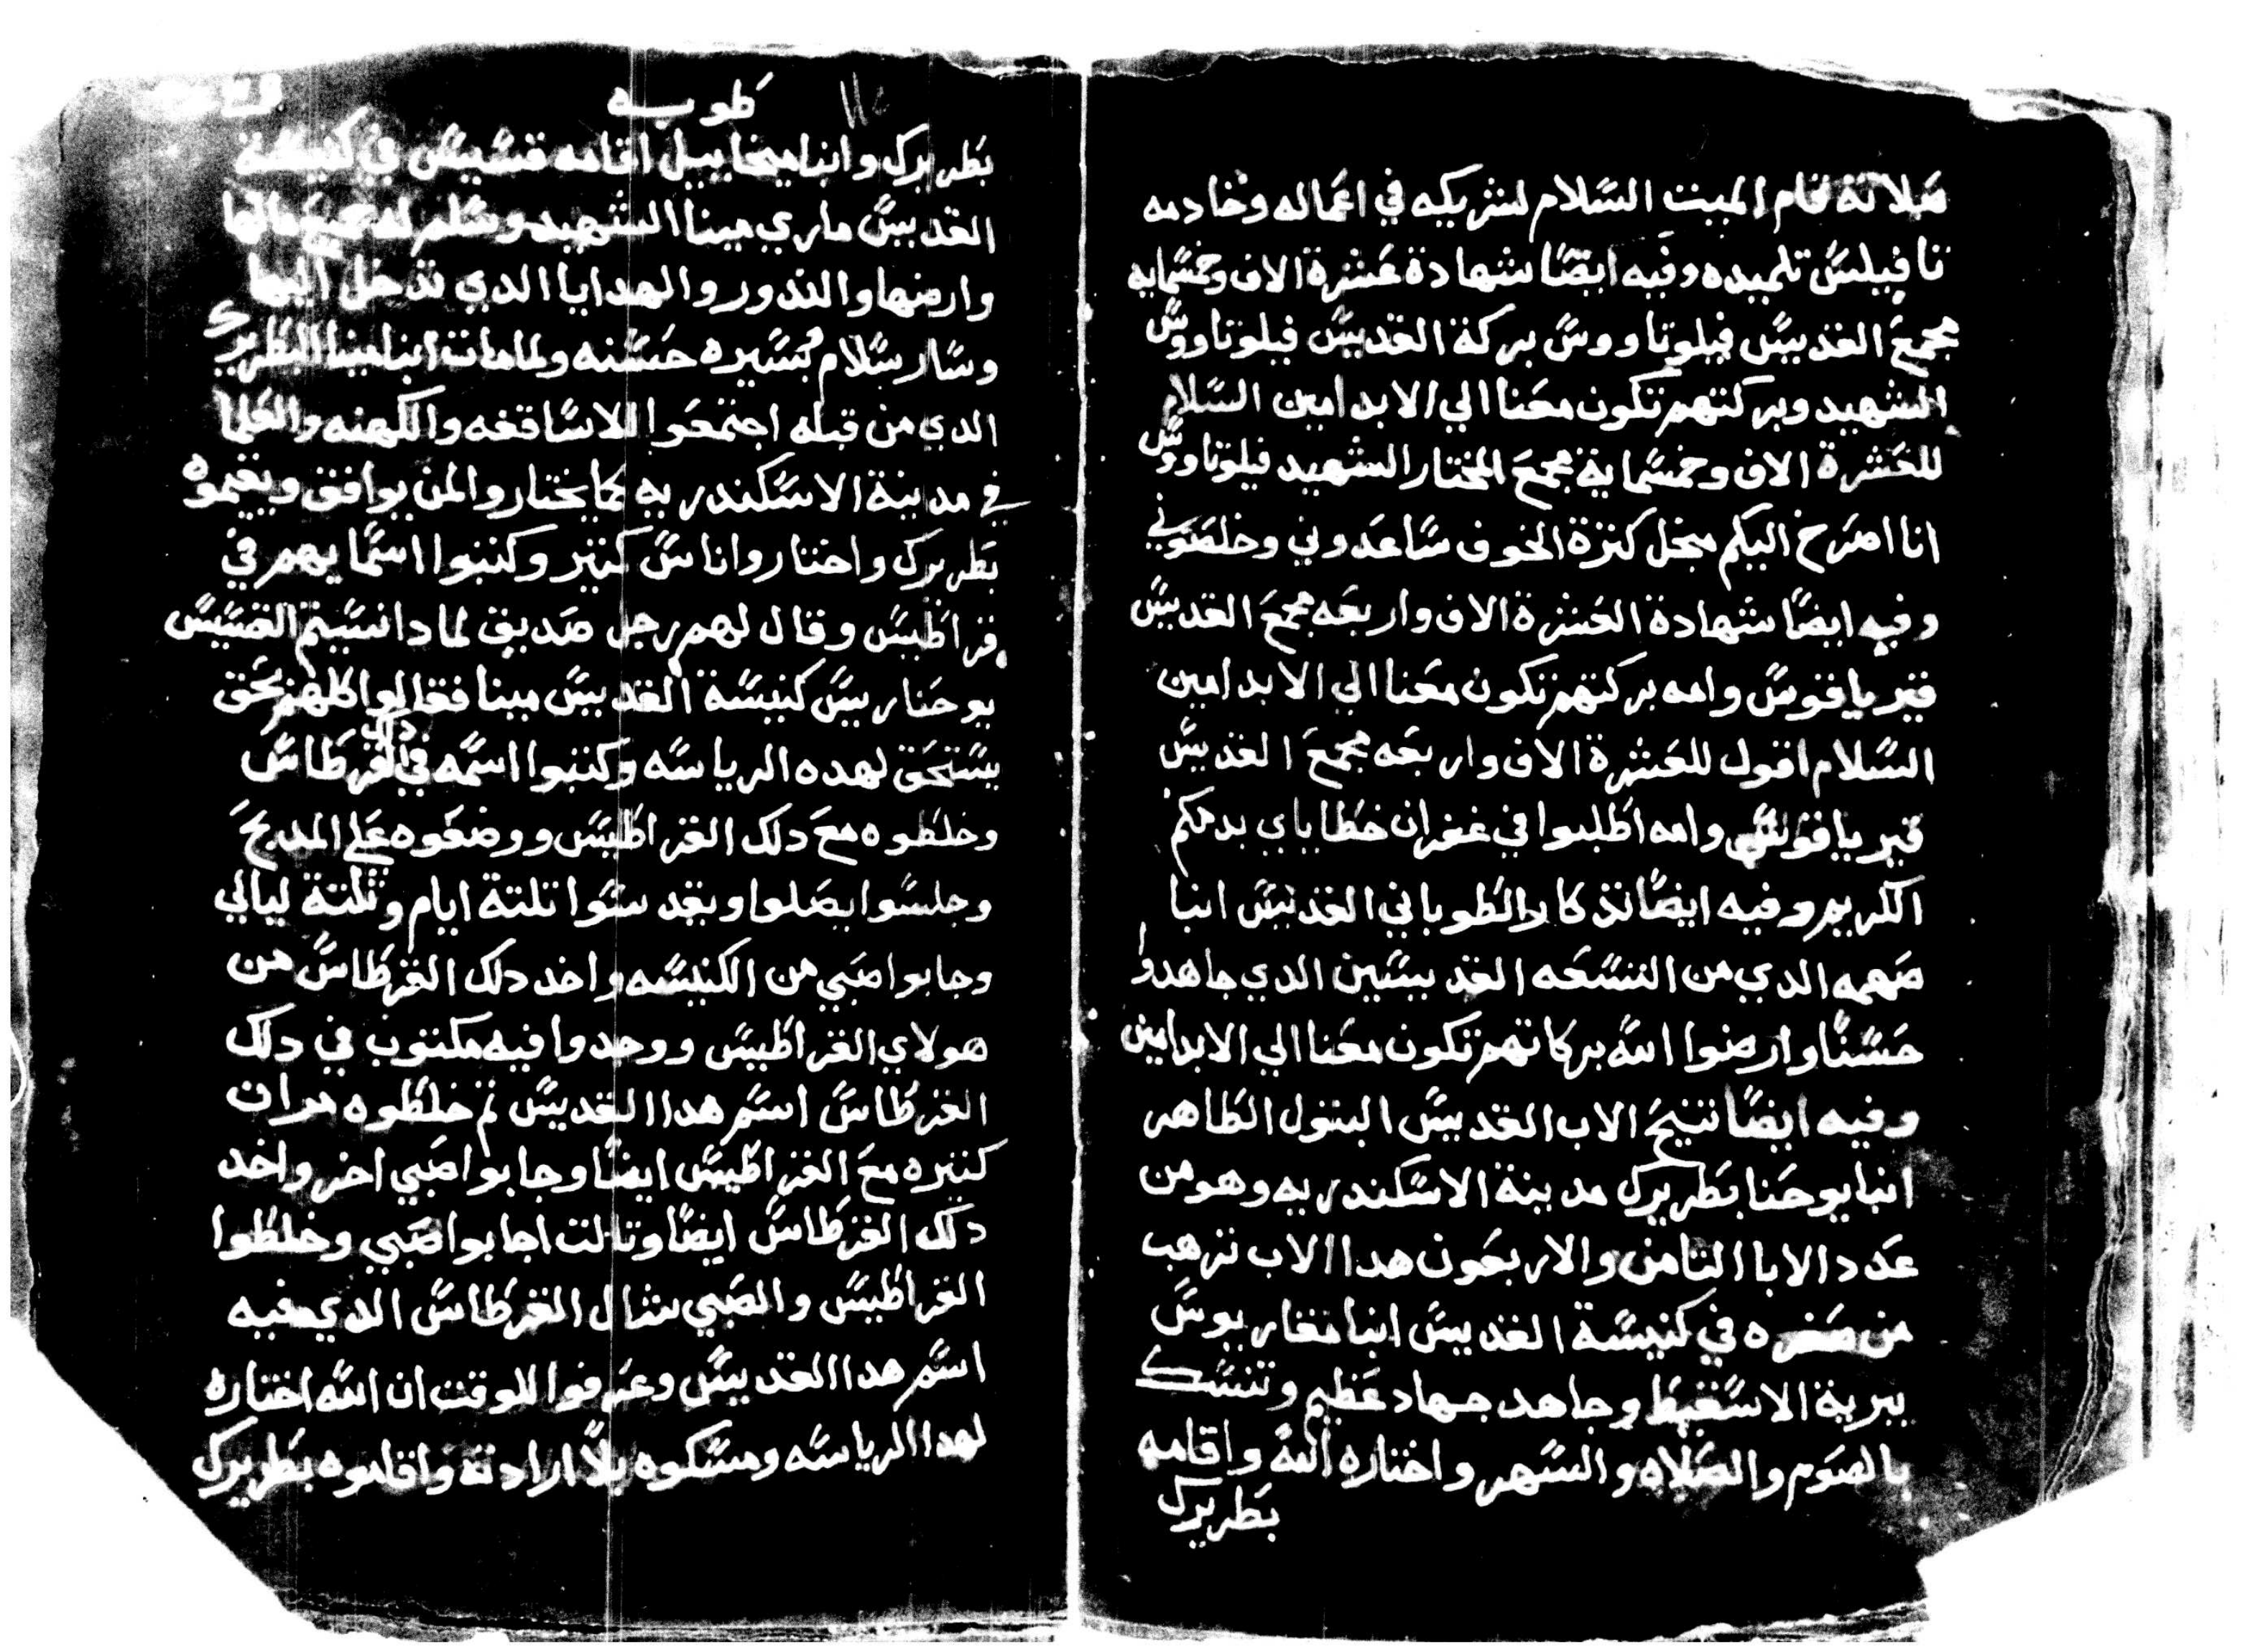 صلاته قام الميت السلام لشريكه في اعماله وخادمه
تافيلس تلميده وفيه ايضا شهادة عشرة الاف وخمسمايه
مجمع القديس فيلوتاووس بركة القديس فيلوتاووس
الشهيد وبركتهم تكون معنا الي الابد امين السلام
للعشرة الاف وخمسماية مجمع المختار الشهيد فيلوتاووس
انا اصرخ اليكم مجل كترة الخوف ساعدوني وخلصوني
وفيه ايضا شهادة العشرة الاف واربعه مجمع القديس
قيرياقوس وامه بركتهم تكون معنا الي الابد امين
السلام اقول للعشرة الاف واربعه مجمع القديس
قيرياقوس وامه اطلبوا في غفران خطاياي بدمكم
الكريم وفيه ايضا تدكار الطوباني القديس انبا
صهمه الدي من التسعه القديسين الدي جاهدوا
حسنا وارضوا الله بركاتهم تكون معنا الي الابد امين
وفيه ايضا تنيح الاب القديس البتول الطاهر
انبا يوحنا بطريرك مدينة الاسكندريه وهو من
عدد الابا التامن والاربعون هدا الاب ترهب
من صغره في كنيسة القديس انبا مقاريوس
ببرية الاسقيط وجاهد جهاد عظيم وتنسك
بالصوم والصلاه والسهر واختاره الله واقامه
بطريرك
طوبه
١١٥
بطريرك وانبا ميخاييل اقامه قسيس في كنيسة
القديس ماري مينا الشهيد وسلم له جميع مالها
وارضها والندور والهدايا الدي تدخل اليها
وسار سلام بسيره حسنه ولما مات انبا مينا البطريرك
الدي من قبله اجتمعوا الاساقفه والكهنه والعلما
في مدينة الاسكندريه كما يختاروا لمن يوافق ويقيموه
بطريرك واختاروا اناس كتير وكتبوا اسمايهم في
قراطيس وقال لهم رجل صديق لمادا نسيتم القسيس
يوحنا ريس كنيسة القديس مينا فقالوا كلهم بحق
يستحق لهده الرياسه وكتبوا اسمه في دلك القرطاس
وخلطوه مع دلك القراطيس ووضعوه علي المدبح
وجلسوا يصلوا ويقدسوا تلتة ايام وتلتة ليالي
وجابوا صبي من الكنيسه واخد دلك القرطاس من
هولاي القراطيس ووجدوا فيه مكتوب في دلك
القرطاس اسم هدا القديس تم خلطوه مرات
كتيره مع القراطيس ايضا وجابوا صبي اخر واخد
دلك القرطاس ايضا وتالت اجابوا صبي وخلطوا
القراطيس والصبي شال القرطاس الدي فيه
اسم هدا القديس وعرفوا للوقت ان الله اختاره
لهدا الرياسه ومسكوه بلا ارادته واقاموه بطريرك